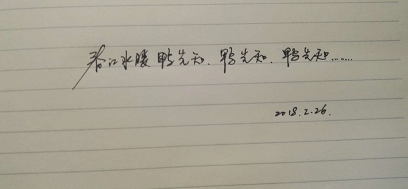 春江水暖鸭先知.鸭先知.鸭先知......
2018.2.26.